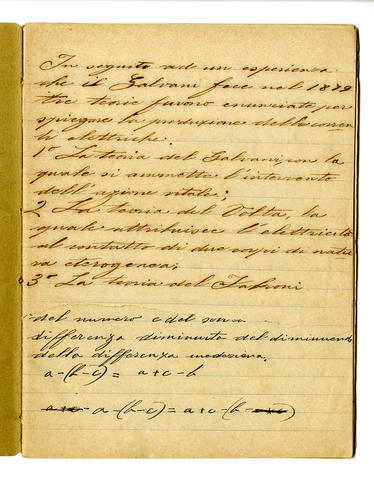 In seguito ad un esperienza
che il Galvani fece nel 1879
tre teorie furono enunciate per
spiegare la produzione delle corren
ti elettriche.
1° La teoria del Galvani con la
quale si ammette l'intervento
dell'azione vitale;
2 La teoria del Volta, la
quale attribuisce l'elettricità
al contatto di due corpi di natu
ra eterogenea;
3° La teoria del Fabroni
del numero c del
differenza diminuita del diminuendo
della differenza medesima.
a-(b-c) = a+c-b
a+c a-(b-c) = a+c-(b-